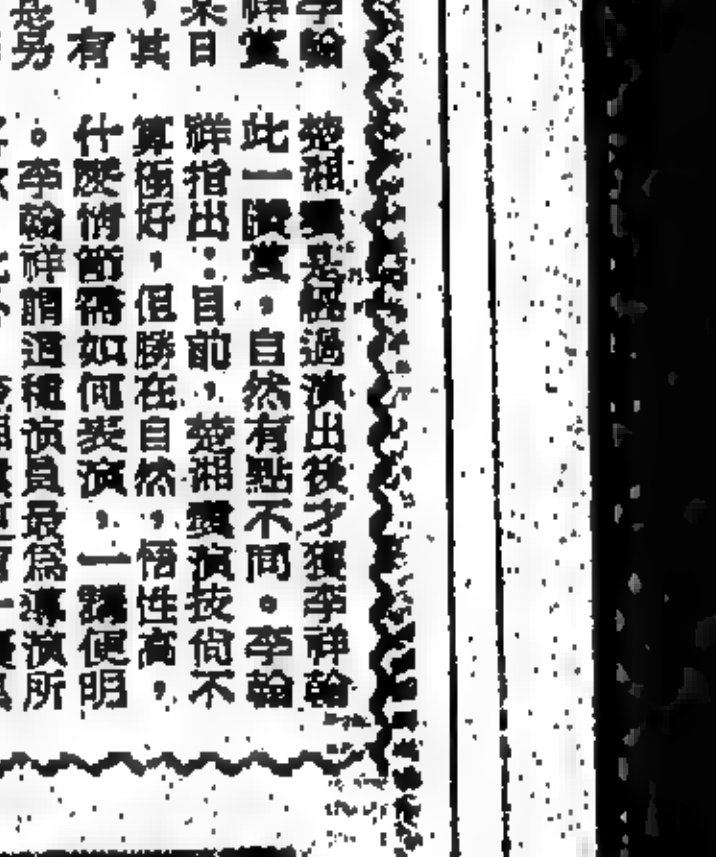 李翰
楚湘雲是經過演出後才獲李祥翰
祥賞
此一讚賞，自然有點不同。李翰
某日
祥指出：目前，楚湘雲演技尚不
，其
算極好，但勝在自然，悟性高，
，有
什麽情節需如何表演，一講便明
是另
。李翰祥謂這種演員最爲導演所